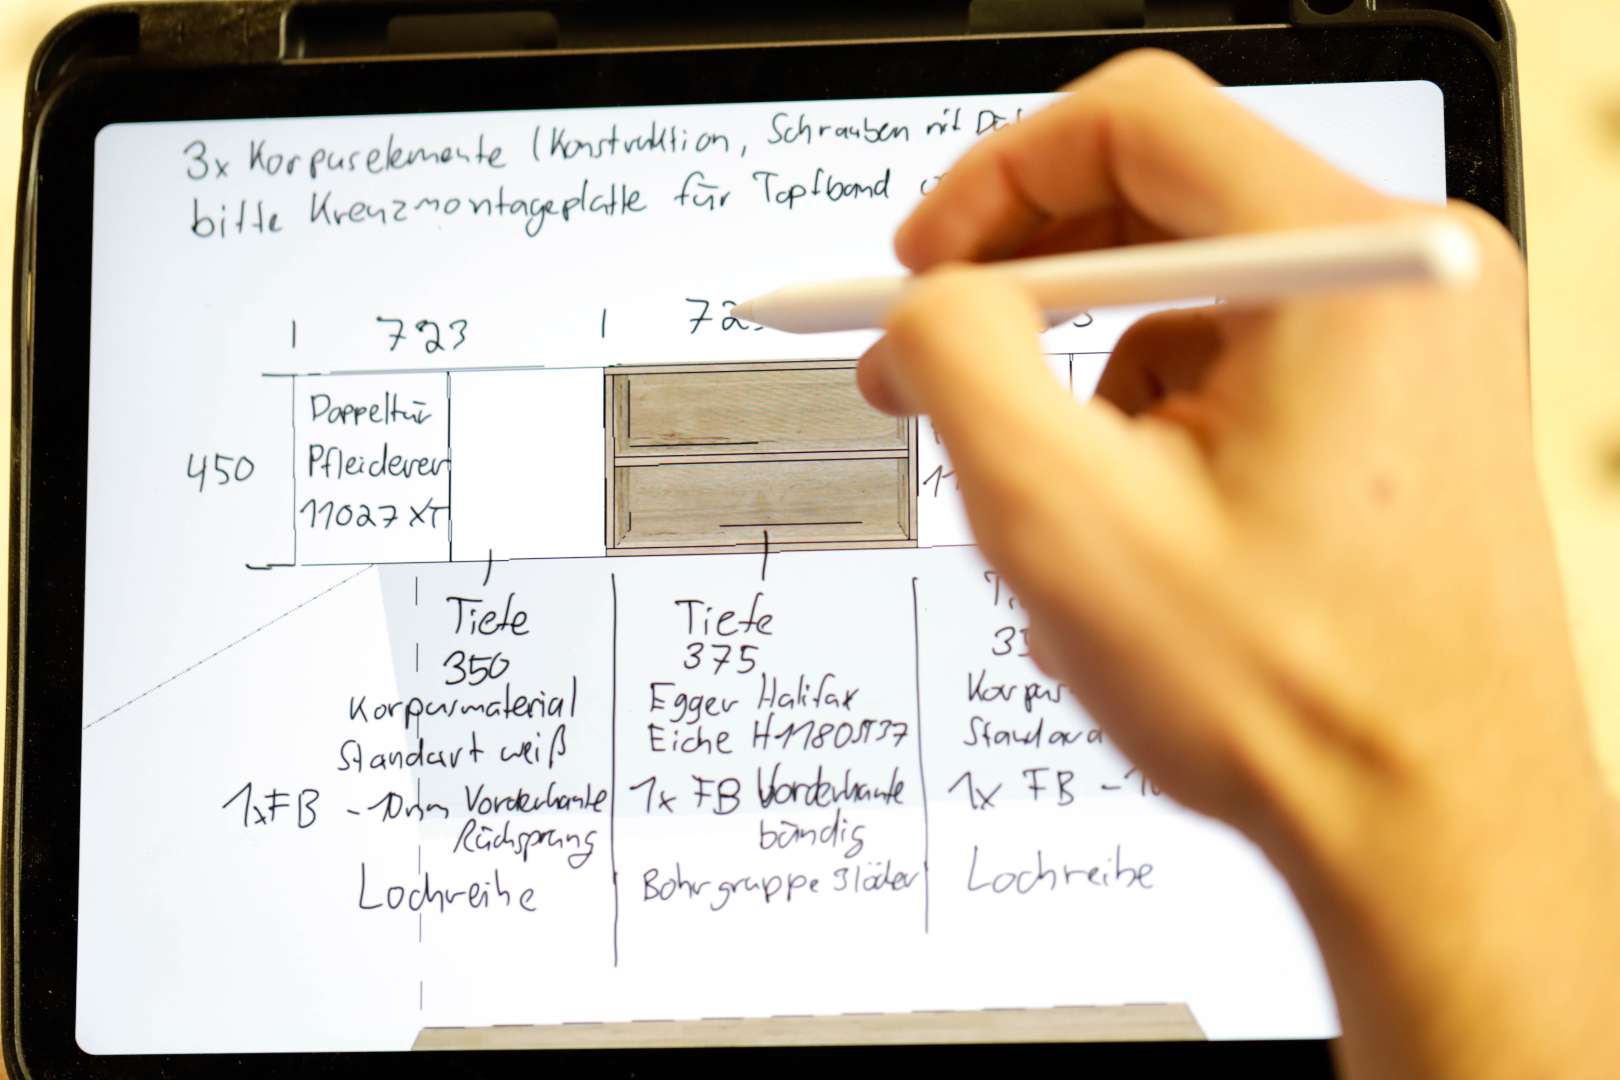 3x Korpuselemente (Konstruktion, Schrauben mit
bitte Kreuzmontageplatte für Topfband
723
450
Doppeltür
Pfleiderer
11027 XT
Tiefe
350
Korpusmaterial
Standart weiß
1xFB -10mm Vorderkante
Rücksprung
Lochreihe
Tiefe
375
Egger Halifax
Eiche H1180ST37
1x FB Vorderkante
bündig
Bohrgruppe 3löcher
Korpus
1x FB -
Lochreihe